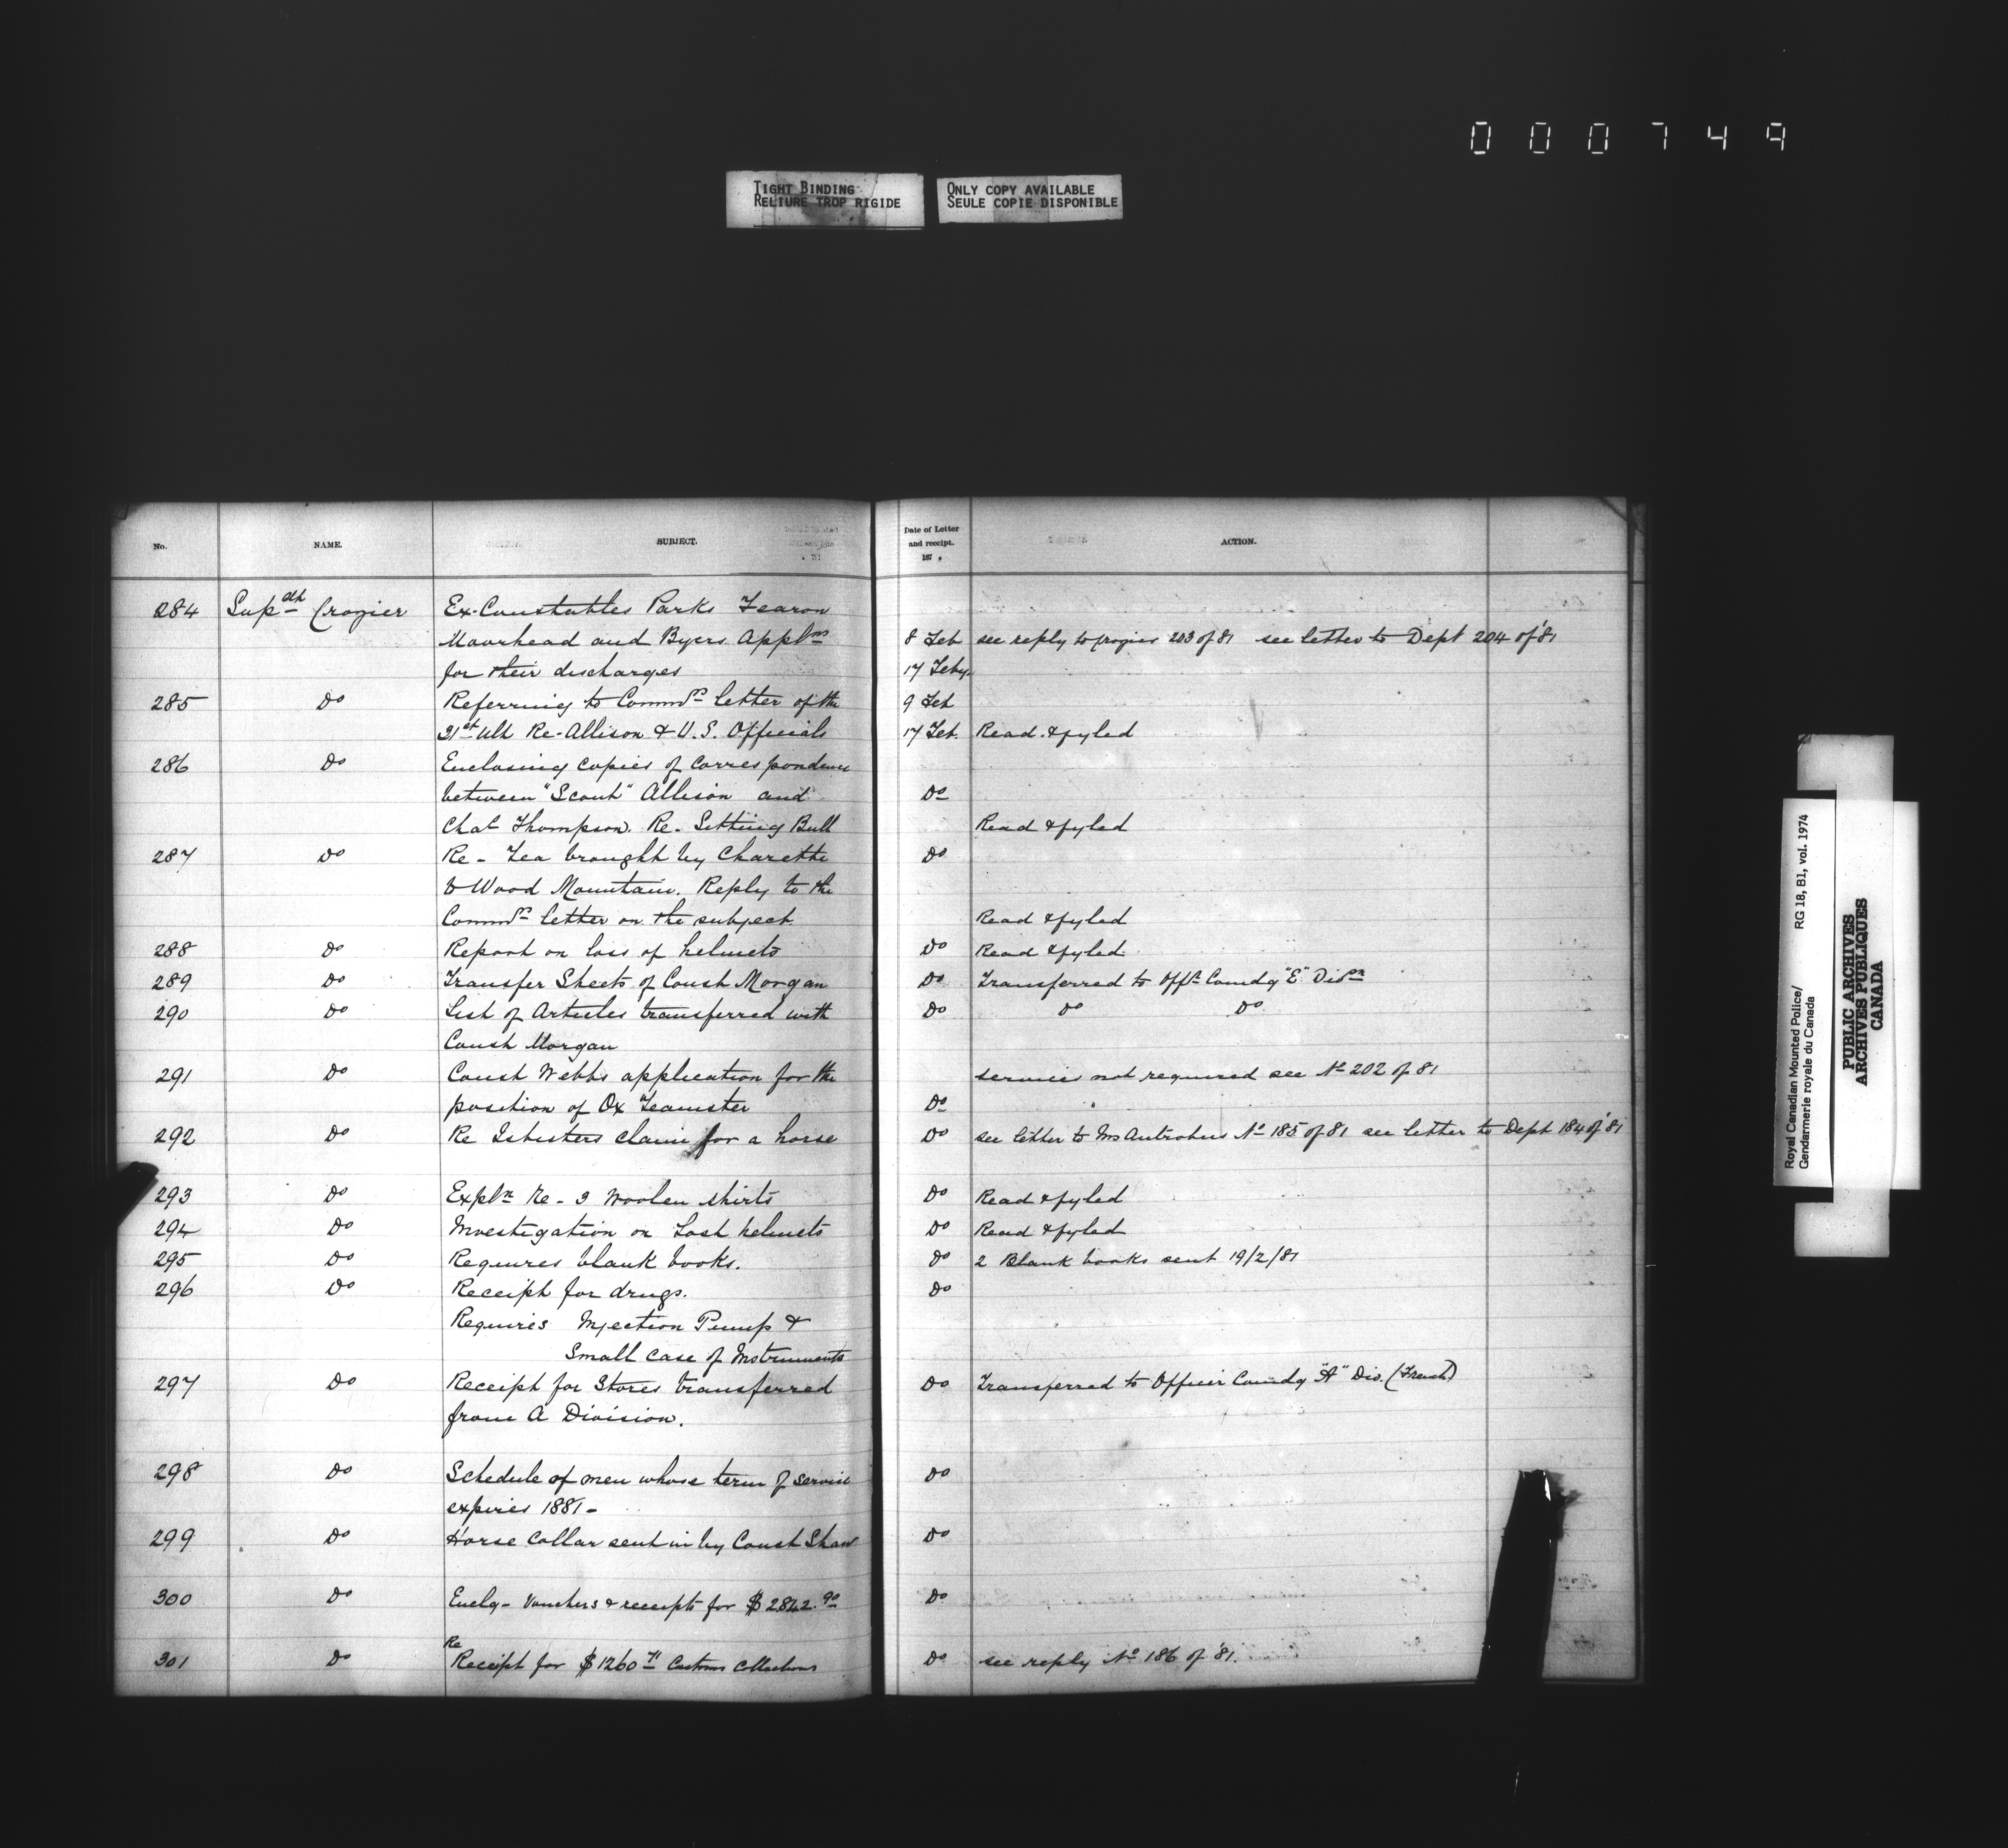 000749
TIGHT BINDING
RELIURE TROP RIGIDE
ONLY COPY AVAILABLE
SEULE COPIE DISPONIBLE
No. NAME. SUBJECT. Date of Letter and receipt. 187 . ACTION.
284 Supdt Crozier Ex-Constables Parks Fearon
Moorhead and Byers. Applns 8 Feb see reply to Crozier 203 of 81 see letter to Dept 204 of '81
for their discharges 17 Feby.
285 Do Referring to Commrs letter of the 9 Feb
31st ult Re-Allison & U.S. Officials 17 Feb. Read & fyled
286 Do Enclosing copies of correspondence
between "Scout" Allison and Do
Chas Thompson. Re-Sitting Bull Read & fyled
287 Do Re- Tea brought by Charette Do
to Wood Mountain. Reply to the
Commrs letter on the subject. Read & fyled
288 Do Report on loss of helmets Do Read & fyled
289 Do Transfer Sheets of Const Morgan Do Transferred to Offr Comdg "E" Divn
290 Do List of Articles transferred with Do Do Do
Const Morgan
291 Do Const Webbs application for the services not required see No 202 of 81
position of Ox Teamster Do
292 Do Re Isbisters claim for a horse Do see letter to Ins Antrobus No 185 of 81 see letter to Dept 184 of '81
293 Do Expln Re- 3 woolen shirts Do Read & fyled
294 Do Investigation on Lost helmets Do Read & fyled
295 Do Requires blank books. Do 2 Blank books sent 19/2/81
296 Do Receipt for drugs. Do
Requires Injection Pump &
Small case of Instruments
297 Do Receipt for Stores transferred Do Transferred to Officer Comdg "A" Div. (French)
from A Division.
298 Do Schedule of men whose term of service Do
expires 1881-
299 Do Horse Collar sent in by Const Shaw Do
300 Do Enclg- vouchers & receipts for $2842.90 Do
Re
301 Do Receipt for $1260.71 Customs Collections Do see reply No 186 of '81.
Royal Canadian Mounted Police/
Gendarmerie royale du Canada
RG 18, B1, vol. 1974
PUBLIC ARCHIVES
ARCHIVES PUBLIQUES
CANADA